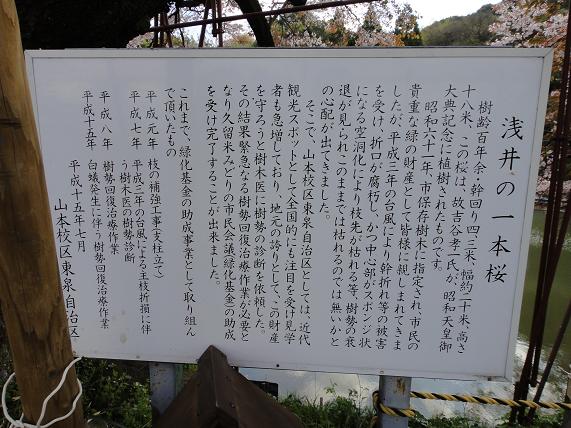 浅井の一本桜
樹齢百年余、幹回り四・三米、幅約二十米、高さ
十八米、この桜は、故吉谷孝一氏が、昭和天皇御
大典記念に植樹されたものです。
昭和六十一年、市保存樹木に指定され、市民の
貴重な緑の財産として皆様に親しまれてきま
したが、平成三年の台風により幹折れ等の被害
を受け、折口が腐朽し、かつ中心部がスポンジ状
になる空洞化により枝先が枯れる等、樹勢の衰
退が見られこのままでは枯れるのでは無いかと
の心配が出てきました。
そこで、山本校区東泉自治区としては、近代
観光スポットとして全国的にも注目を受け見学
者も急増しており、地元の誇りとして、この財産
を守ろうと樹木医に樹勢の診断を依頼した。
その結果緊急なる樹勢回復治療作業が必要と
なり久留米みどりの市民会議(緑化基金)の助成
を受け完了することが出来ました。
これまで、緑化基金の助成事業として取り組ん
で頂いたもの
平成元年 枝の補強工事(支柱立て)
平成七年 平成三年の台風による主枝折損に伴
う樹木医の樹勢診断
平成八年 樹勢回復治療作業
平成十五年 白蟻発生に伴う樹勢回復治療作業
平成十五年七月
山本校区東泉自治区